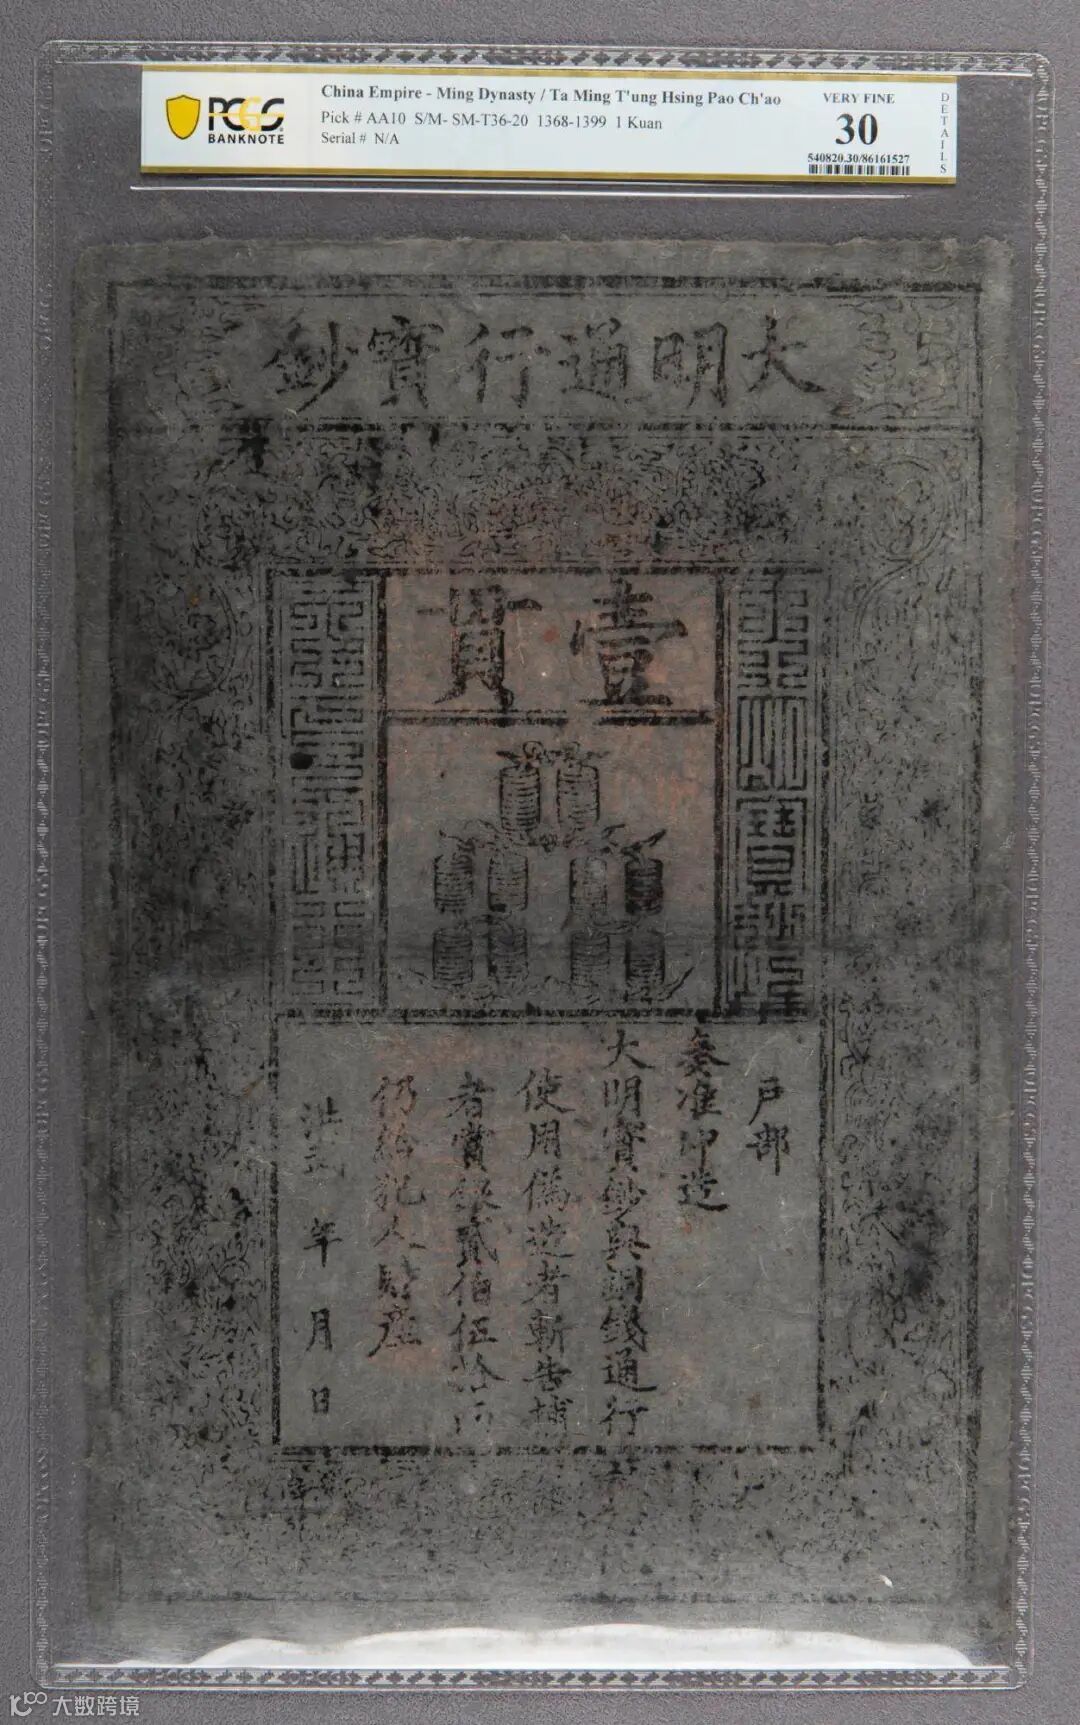 PCGS
BANKNOTE
China Empire - Ming Dynasty / Ta Ming T'ung Hsing Pao Ch'ao
Pick # AA10 S/M- SM-T36-20 1368-1399 1 Kuan
Serial # N/A
VERY FINE
30
540820.30/86161527
DETAILS
大明通行寶鈔
壹貫
大明寶鈔
天下通行
戶部
奏准印造
大明寶鈔與銅錢通行
使用偽造者斬告捕
者賞銀貳伯伍拾兩
仍給犯人財產
洪武 年 月 日
大数跨境